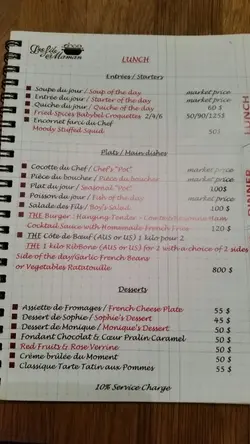 LUNCH
Entrées / Starters
Soupe du jour / Soup of the day market price
Entrée du jour / Starter of the day market price
Quiche du jour / Quiche of the day 60 $
Fried Spices Babybel Croquettes 2/4/6 50/90/125$
Encornet farci du Chef
Moody Stuffed Squid 50$
Plats / Main dishes
Cocotte du Chef / Chef's "Pot" market price
Pièce du boucher / Pièce du boucher market price
Plat du jour / Seasonal "Pot" 100$
Poisson du jour / Fish of the day market price
Salade des Fils / Boy's Salad 100 $
THE Burger : Hanging Tender - Ham
Cocktail Sauce with Homemade French Fries 120 $
THE Côte de Bœuf (AUS or US) 1 kilo pour 2
THE 1 kilo RibBone (AUS or US) for 2 with a choice of 2 sides
Side of the day/Garlic French Beans
or Vegetables Ratatouille 800 $
Desserts
Assiette de Fromages / French Cheese Plate 55 $
Dessert de Sophie / Sophie's Dessert 45 $
Dessert de Monique / Monique's Dessert 50 $
Fondant Chocolat & Cœur Pralin Caramel 50 $
Red Fruits & Rose Verrine 50 $
Crème brûlée du Moment 50 $
Classique Tarte Tatin aux Pommes 55 $
10% Service Charge
LUNCH
DINNER